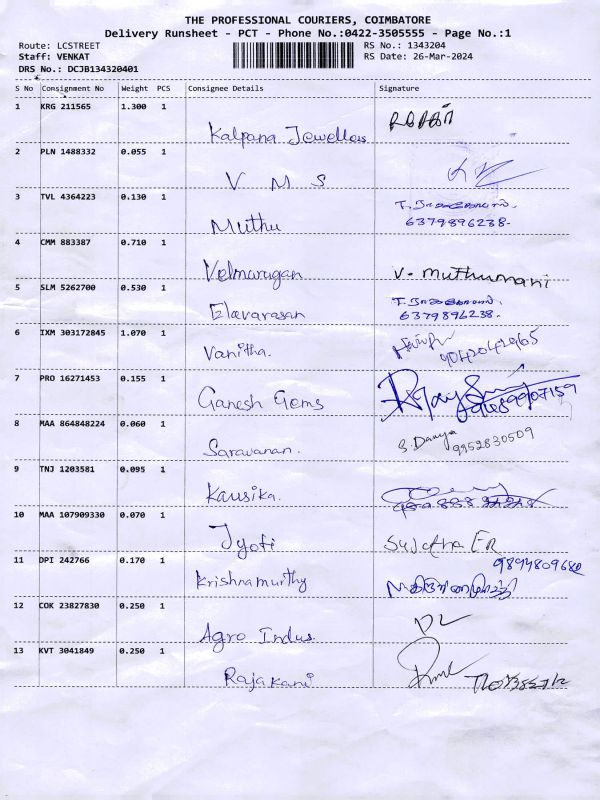 THE PROFESSIONAL COURIERS, COIMBATORE
Delivery Runsheet - PCT - Phone No.:0422-3505555 - Page No.:1
Route: LCSTREET RS No.: 1343204
Staff: VENKAT RS Date: 26-Mar-2024
DRS No.: DCJB134320401
S No Consignment No Weight PCS Consignee Details Signature
1 KRG 211565 1.300 1
Kalpana Jewellers
2 PLN 1488332 0.055 1
V M S
3 TVL 4364223 0.130 1
Muthu 6379896238-
4 CMM 883387 0.710 1
Velmurugan V- Muthumani
5 SLM 5262700 0.530 1
Elavarasan 6379896238-
6 IXM 303172845 1.070 1
Vanitha.
7 PRO 16271453 0.155 1
Ganesh Gems
8 MAA 864848224 0.060 1
Saravanan. S. Danya 9952830509
9 TNJ 1203581 0.095 1
Kausika.
10 MAA 107909330 0.070 1
Jyoti Sujatha ER
11 DPI 242766 0.170 1
Krishnamurthy
12 COK 23827830 0.250 1
Agro Indus
13 KVT 3041849 0.250 1
Rajakani